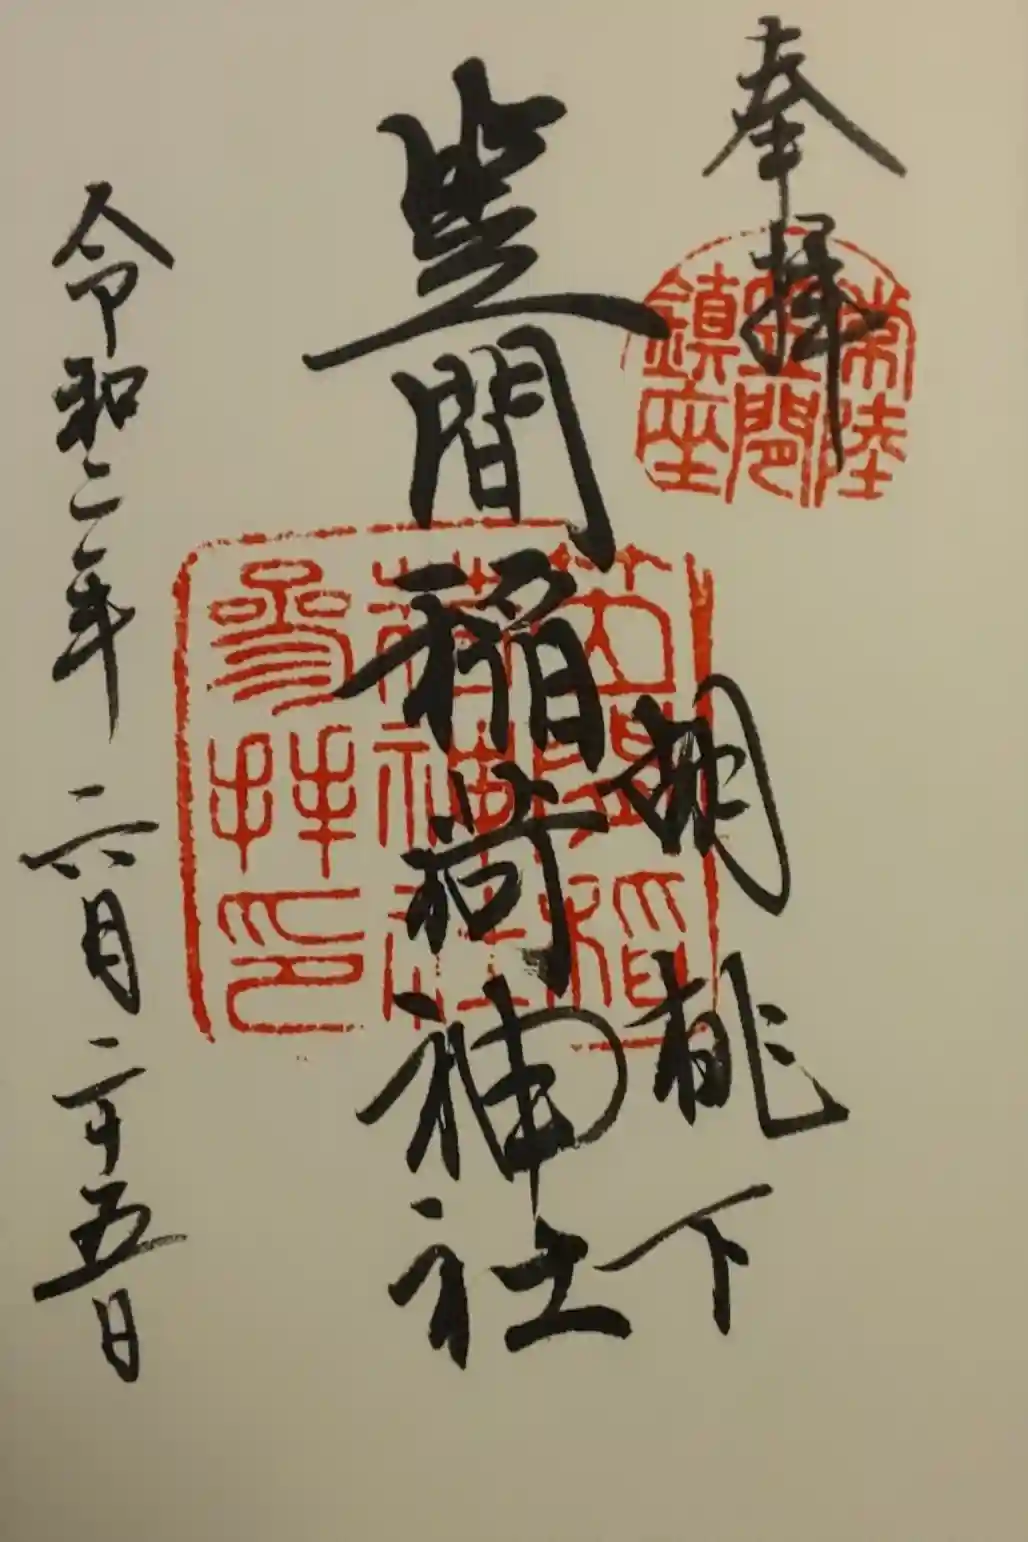 奉拝
常陸
笠間
鎮座
胡桃下
笠間稲荷神社
笠間稲
荷神社
參拝印
令和二年 六月二十五日